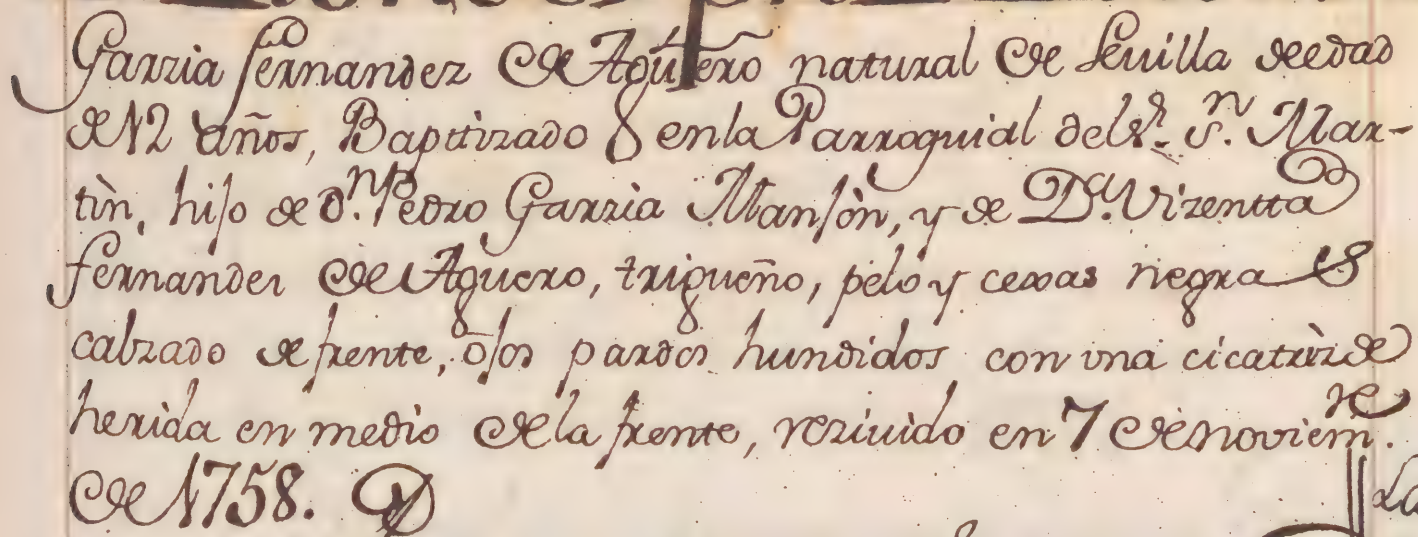 Garzia fernandez de Agûero natural de Seuilla de edad
de 12 años, Baptizado en la Parroquial del Sr. Sn. Mar-
tìn, hijo de Dn. Pedro Garzia Monsòn, y de Da. Vizentta
fernandez de Aguero, trigueño, pelo y cexas negras
calzado de frente, ojos pardos hundidos con vna cicatrìz de
herida en medio de la frente, reziuido en 7 de noviemre.
de 1758.
La